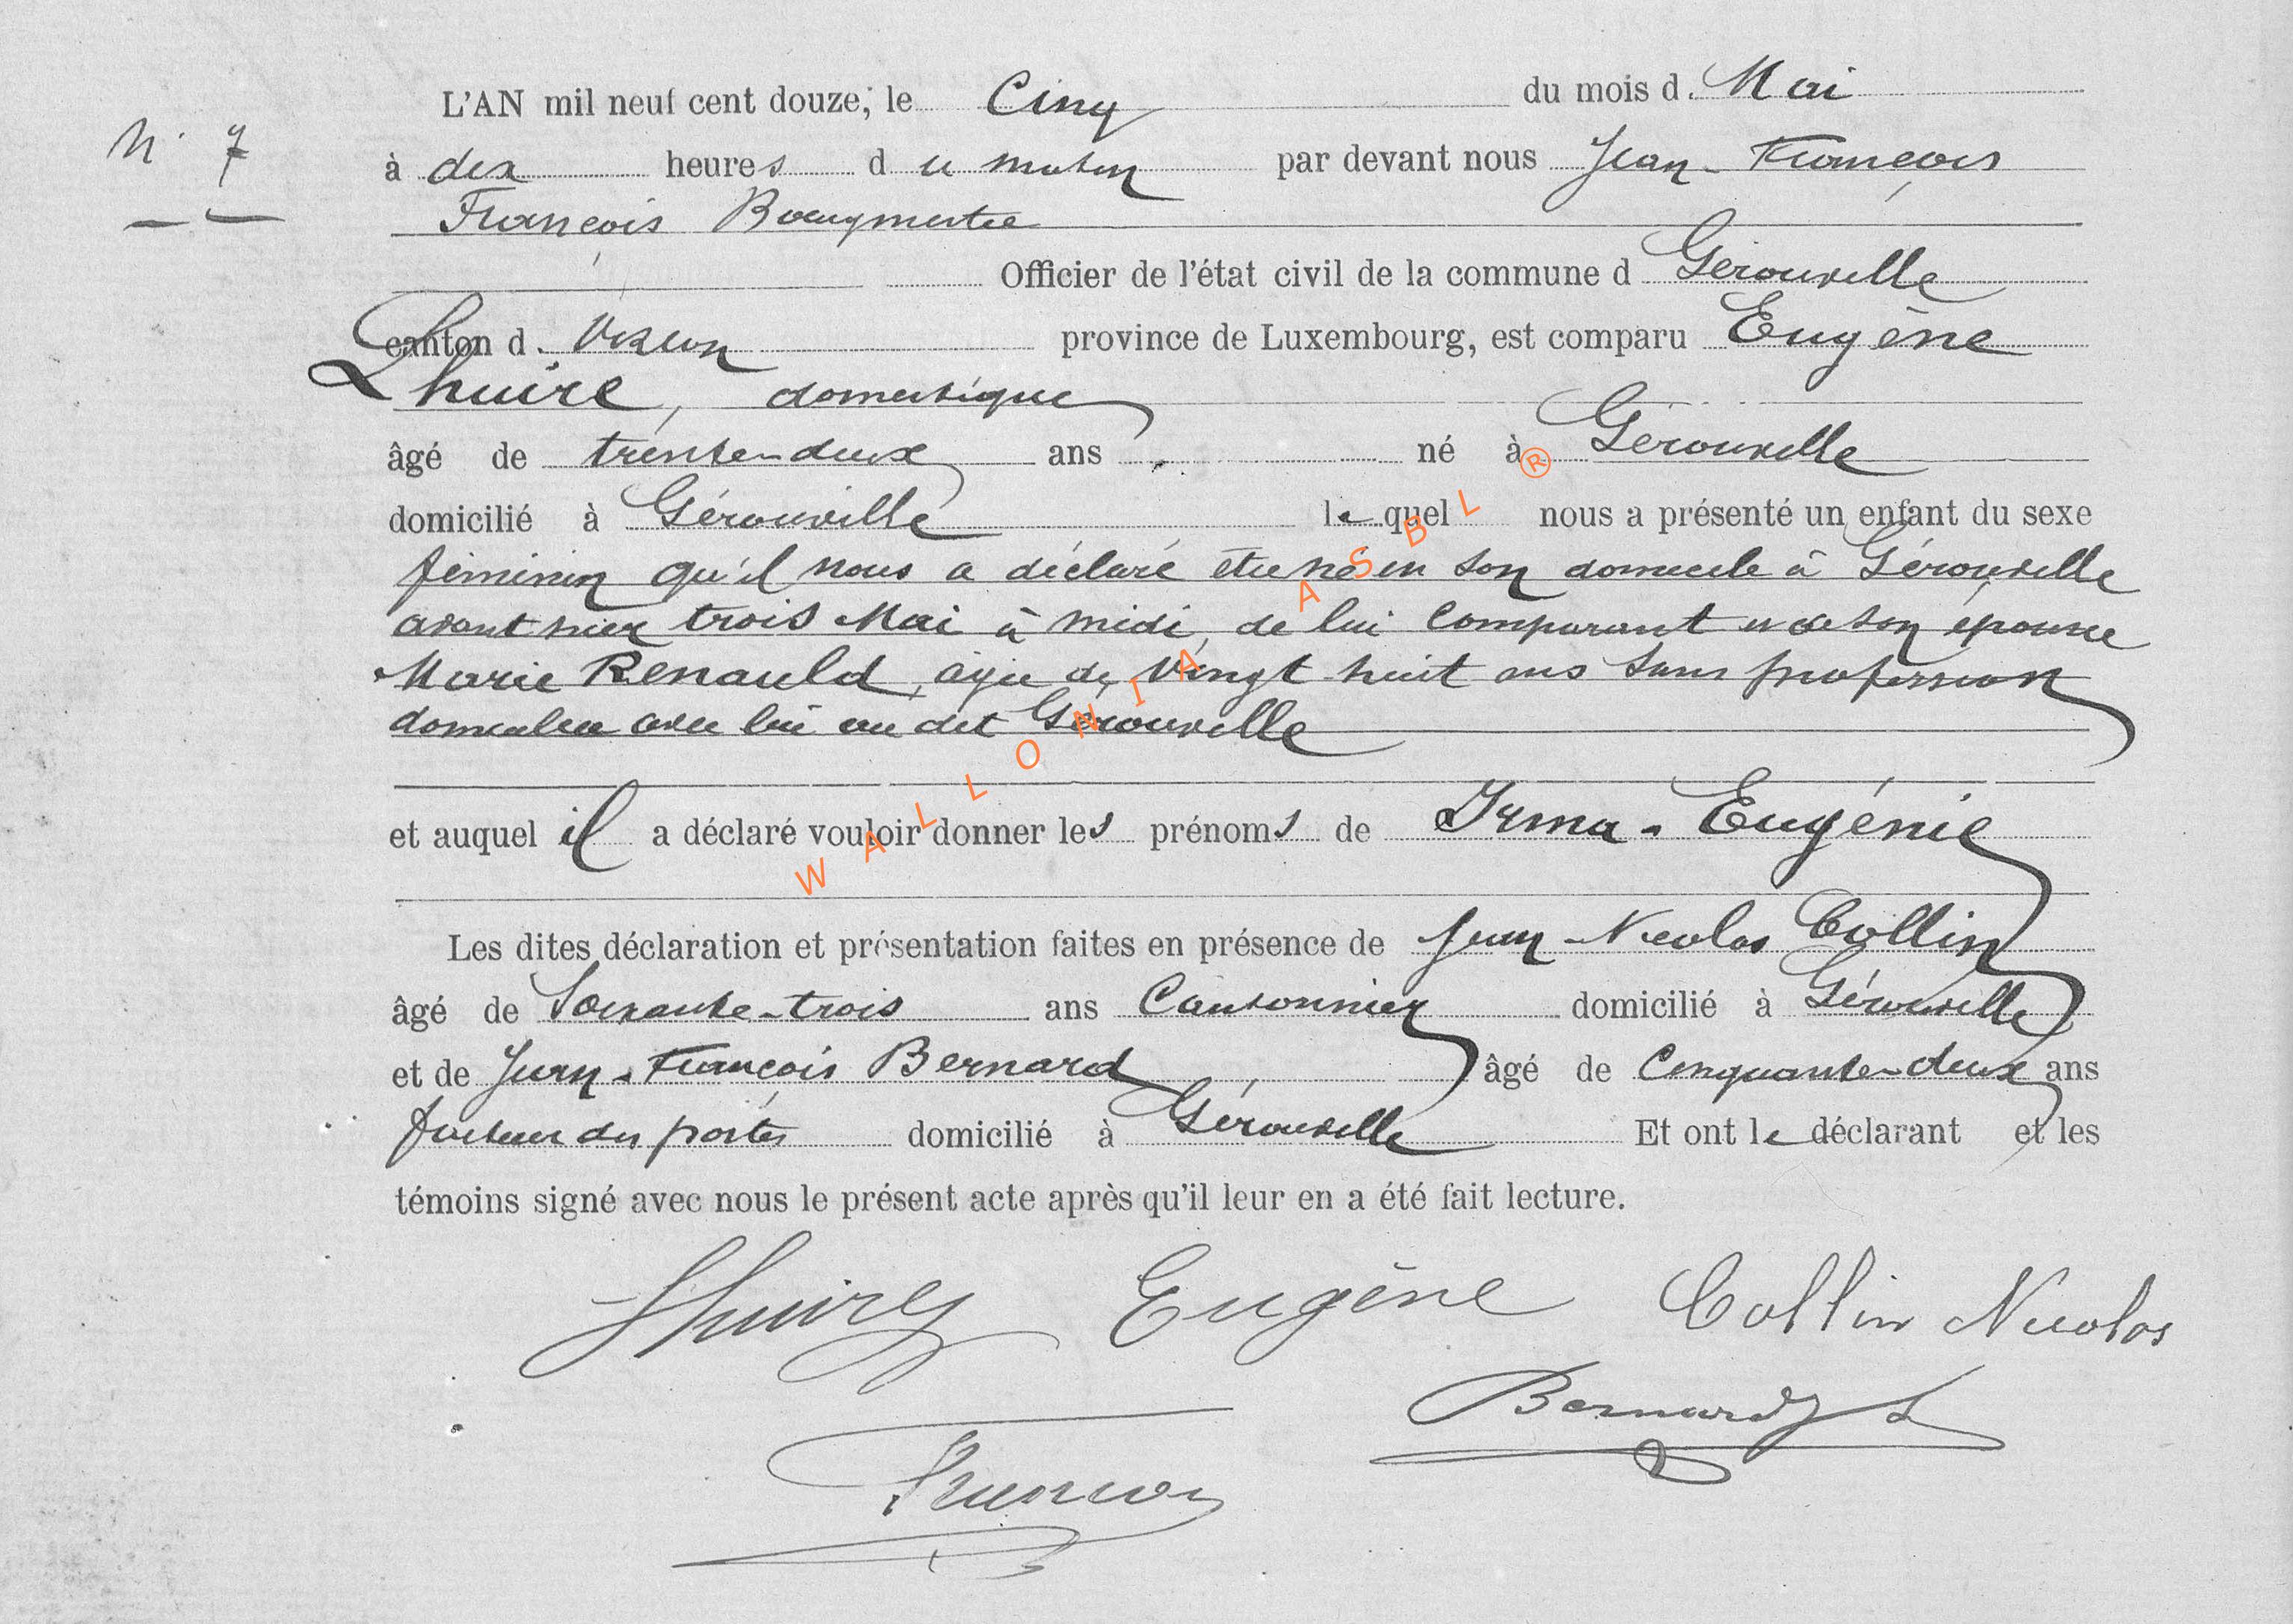 L'AN mil neuf cent douze, le Cinq du mois d. Mai
N° 7
à dix heures du matin par devant nous Jean-François
François
Officier de l'état civil de la commune d Gérouville
canton d. Virton province de Luxembourg, est comparu Eugène
Lhuire, domestique
âgé de trente-deux ans né à Gérouville
domicilié à Gérouville lequel nous a présenté un enfant du sexe
féminin qu'il nous a déclaré être né en son domicile à Gérouville
avant hier trois Mai à midi, de lui comparant et de son épouse
Marie Renauld, âgée de vingt huit ans sans profession
domiciliée avec lui au dit Gérouville
et auquel il a déclaré vouloir donner les prénoms de Irma-Eugénie
Les dites déclaration et présentation faites en présence de Jean-Nicolas Collin
âgé de Soixante-trois ans Cantonnier domicilié à Gérouville
et de Jean-François Bernard âgé de Cinquante-deux ans
facteur des postes domicilié à Gérouville Et ont le déclarant et les
témoins signé avec nous le présent acte après qu'il leur en a été fait lecture.
Lhuire Eugène Collin Nicolas
Bernard
WALLONIA ASBL ®